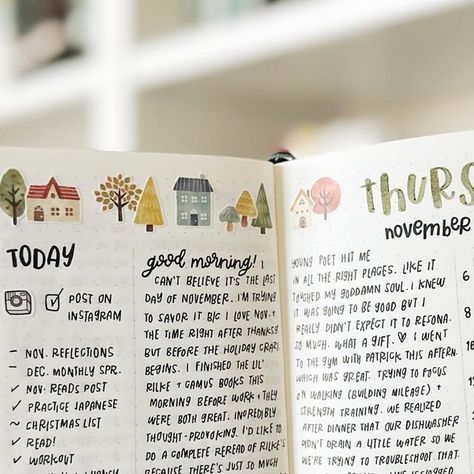 TODAY
POST ON
INSTAGRAM
– NOV. REFLECTIONS
– DEC. MONTHLY SPR.
✓ NOV. READS POST
✓ PRACTICE JAPANESE
~ CHRISTMAS LIST
✓ READ!
✓ WORKOUT
good morning! I
CAN'T BELIEVE IT'S THE LAST
DAY OF NOVEMBER. I'M TRYING
TO SAVOR IT B/C I LOVE NOV. +
THE TIME RIGHT AFTER THANKSG
BUT BEFORE THE HOLIDAY CRAZ
BEGINS. I FINISHED THE LIL'
RILKE + CAMUS BOOKS THIS
MORNING BEFORE WORK + THEY
WERE BOTH GREAT. INCREDIBLY
THOUGHT-PROVOKING. I'D LIKE TO
DO A COMPLETE REREAD OF RILKE'S
BECAUSE THERE'S JUST SO MUCH
thurs
november
YOUNG POET HIT ME
IN ALL THE RIGHT PLACES. LIKE IT
TOUCHED MY GODDAMN SOUL. I KNEW
IT WAS GOING TO BE GOOD BUT I
REALLY DIDN'T EXPECT IT TO RESONA.
SO MUCH. WHAT A GIFT. ♥ I WENT
TO THE GYM WITH PATRICK THIS AFTERN.
WHICH WAS GREAT. TRYING TO FOCUS
ON WALKING (BUILDING MILEAGE) +
STRENGTH TRAINING. WE REALIZED
AFTER DINNER THAT OUR DISHWASHER
DIDN'T DRAIN A LITTLE WATER SO WE
6
7
8
9